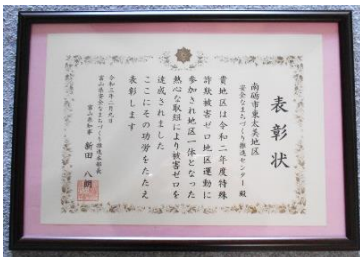 表彰状
南砺市東太美地区
安全なまちづくり推進センター 殿
貴地区は令和二年度特殊
詐欺被害ゼロ地区運動に
参加され地区一体となった
熱心な取組により被害ゼロを
達成されました
ここにその功労をたたえ
表彰します
令和三年二月九日
富山県安全なまちづくり推進本部長
富山県知事 新田 八朗